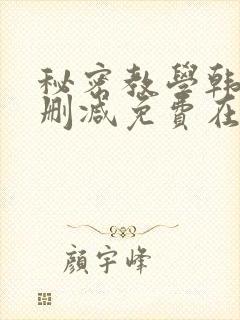 秘密教學韩
刪減免費在
顔宇峰